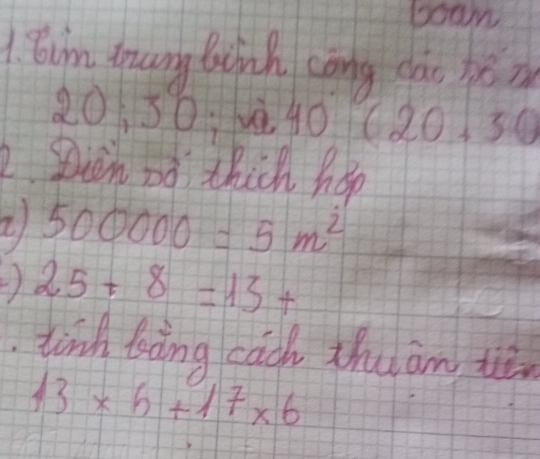 Toán
1. Tìm trung bình cộng các số
20; 30; và 40 (20 + 30
2. Điền số thích hợp
a) 500000 = 5 m²
) 25 + 8 = 13 +
. tính bằng cách thuận tiện
13 × 6 + 17 × 6